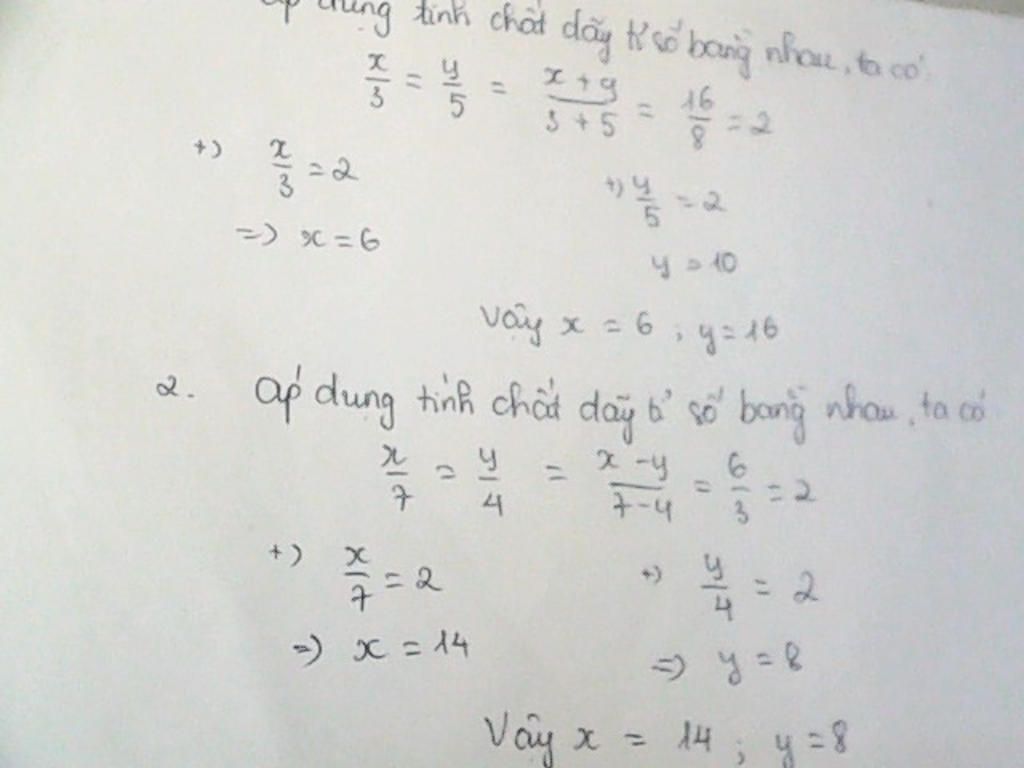 áp dụng tính chất dãy tỉ số bằng nhau, ta có
x/3 = y/5 = (x + y)/(3 + 5) = 16/8 = 2
+) x/3 = 2 +) y/5 = 2
=> x = 6 y = 10
Vậy x = 6 ; y = 16
2. áp dụng tính chất dãy tỉ số bằng nhau, ta có
x/7 = y/4 = (x - y)/(7 - 4) = 6/3 = 2
+) x/7 = 2 +) y/4 = 2
=> x = 14 => y = 8
Vậy x = 14 ; y = 8